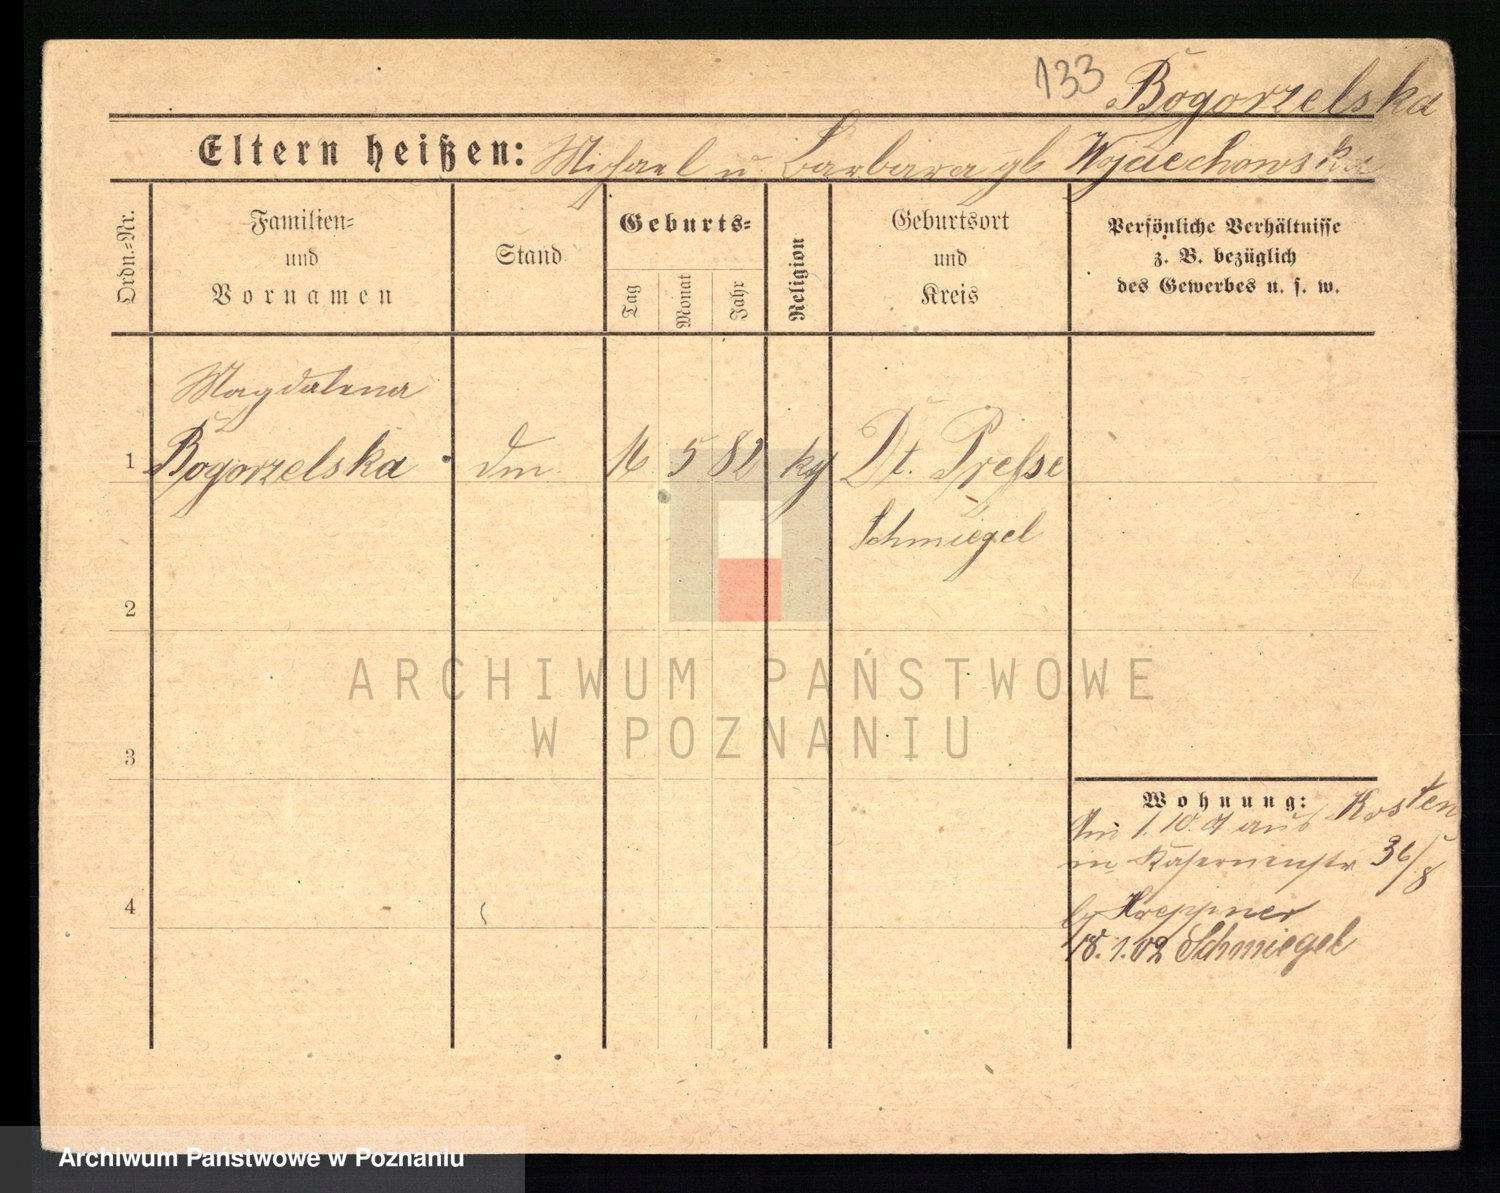 133 Bogorzelska
Eltern heißen: Michael u Barbara gb Wojciechowska
Ordn.=Nr.
Familien=
und
Vornamen
Stand
Geburts=
Tag
Monat
Jahr
Religion
Geburtsort
und
Kreis
Persönliche Verhältnisse
z. B. bezüglich
des Gewerbes u. s. w.
Magdalena
1 Bogorzelska 16 5 82 Dt. Presse
Schmiegel
2
3
4
Wohnung:
1.10. aus Kosten
in Kasernenstr 36/8
Hoeppner
18.1.02 Schmiegel
ARCHIWUM PAŃSTWOWE
W POZNANIU
Archiwum Państwowe w Poznaniu